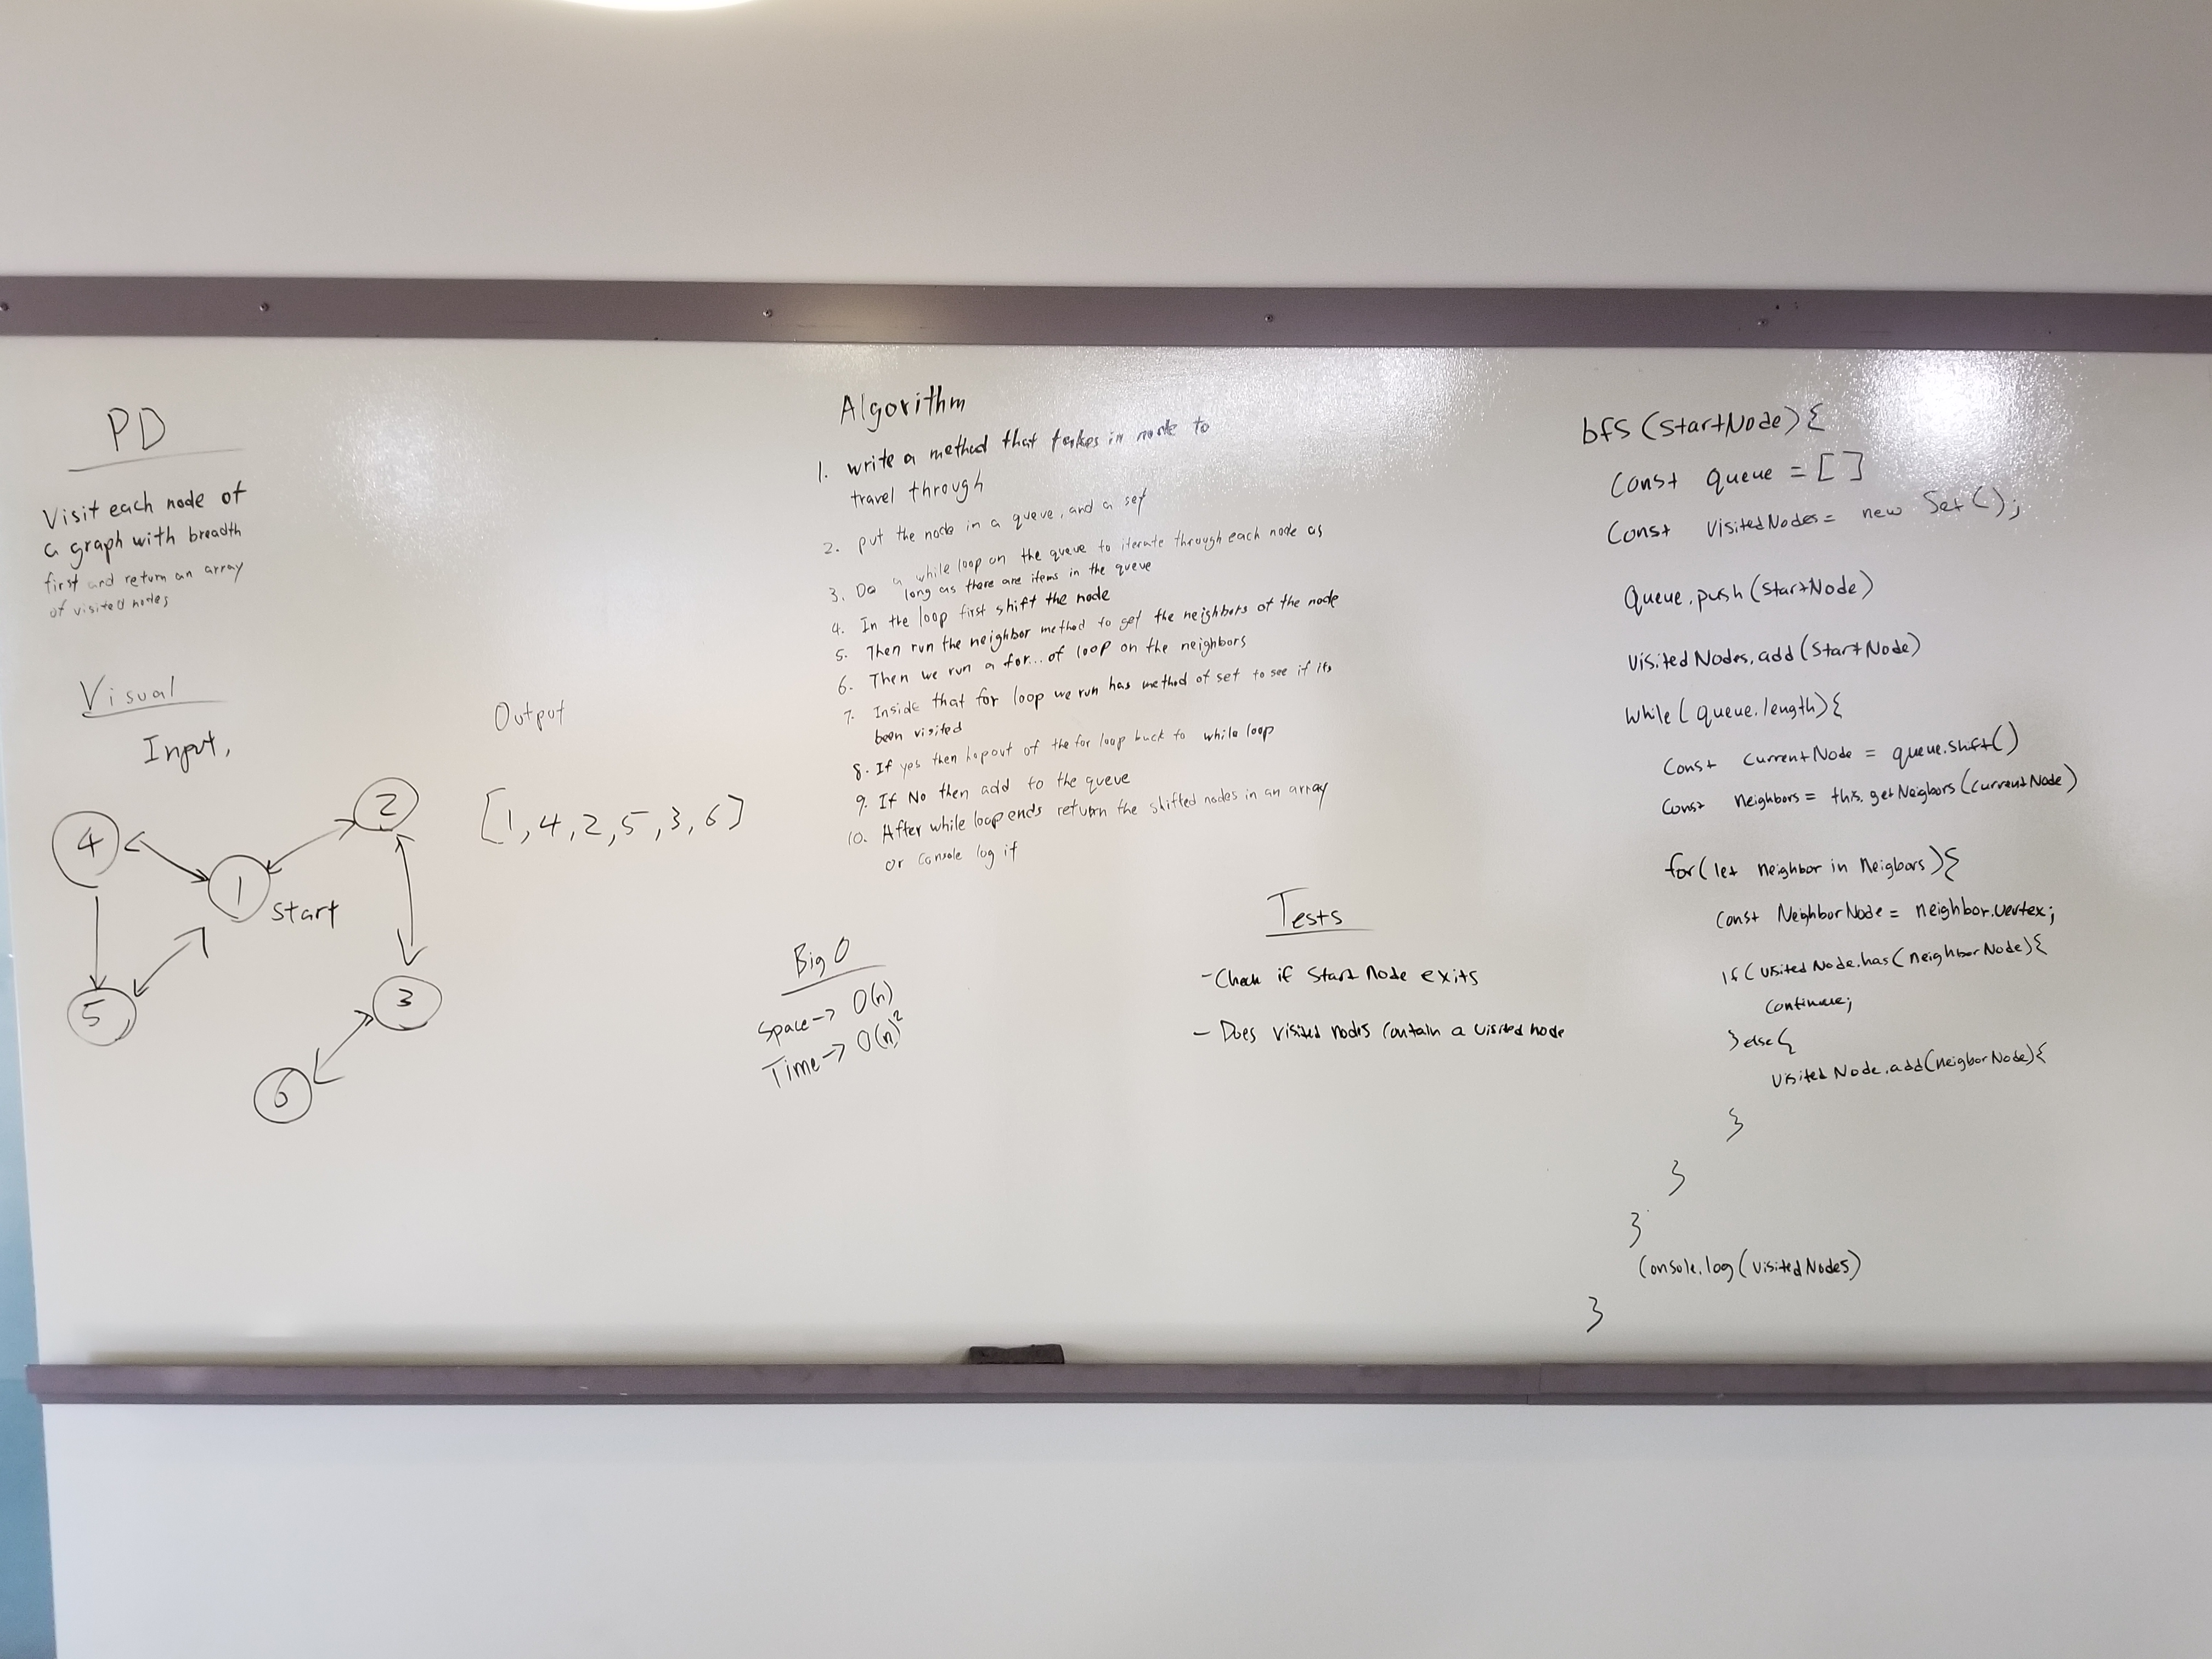 PD
Visit each node of
a graph with breadth
first and return an array
of visited nodes
Visual
Input,
4
2
1
Start
5
3
6
Output
[1,4,2,5,3,6]
Algorithm
1. write a method that takes in node to
travel through
2. put the node in a queue, and a set
3. Do a while loop on the queue to iterate through each node as
long as there are items in the queue
4. In the loop first shift the node
5. Then run the neighbor method to get the neighbors of the node
6. Then we run a for...of loop on the neighbors
7. Inside that for loop we run has method of set to see if its
been visited
8. If yes then hop out of the for loop back to while loop
9. If No then add to the queue
10. After while loop ends return the shifted nodes in an array
or console log it
Big O
Space -> O(n)
Time -> O(n)²
Tests
- Check if Start Node exits
- Does visited nodes contain a visited node
bfs (StartNode) {
Const queue = [ ]
Const VisitedNodes = new Set();
Queue.push(StartNode)
VisitedNodes.add(StartNode)
While (queue.length) {
Const currentNode = queue.shift()
Const neighbors = this.getNeigbors(currentNode)
for (let neighbor in Neigbors) {
Const NeighborNode = neighbor.vertex;
If (visited Node.has(neighborNode) {
Continue;
} else {
Visited Node.add(neigborNode) {
}
}
}
Console.log(visitedNodes)
}